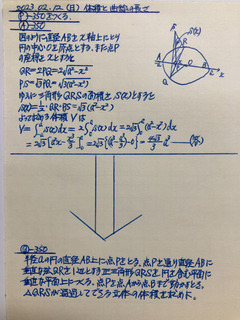 2023.02.12(日) 体積と曲線の長さ
(P)-350をつくる。
(A)-350
図のように直径ABをx軸上にとり
円の中心Oを原点とする。また点P
の座標をxとすると
QR=2PQ=2√a²-x²
PS=√3PQ=√3(a²-x²)
ゆえに三角形QRSの面積を S(x)とすると
S(x)=½・QR・PS=√3(a²-x²)
よって求める体積Vは
V=∫S(x)dx=2∫S(x)dx=2√3∫(a²-x²)dx
=2√3[a²x-x³/3]=2√3{(a³-a³/3)-0}=4√3/3 a³ (答)
(Q)-350
半径aの円の直径AB上に点Pをとる。点Pを通り直径ABに
垂直な弦QRを1辺とする正三角形QRSを円を含む平面に
垂直な平面上につくる。点Pを点Aから点Bまで動かすとき、
△QRSが通過してできる立体の体積を求めよ。